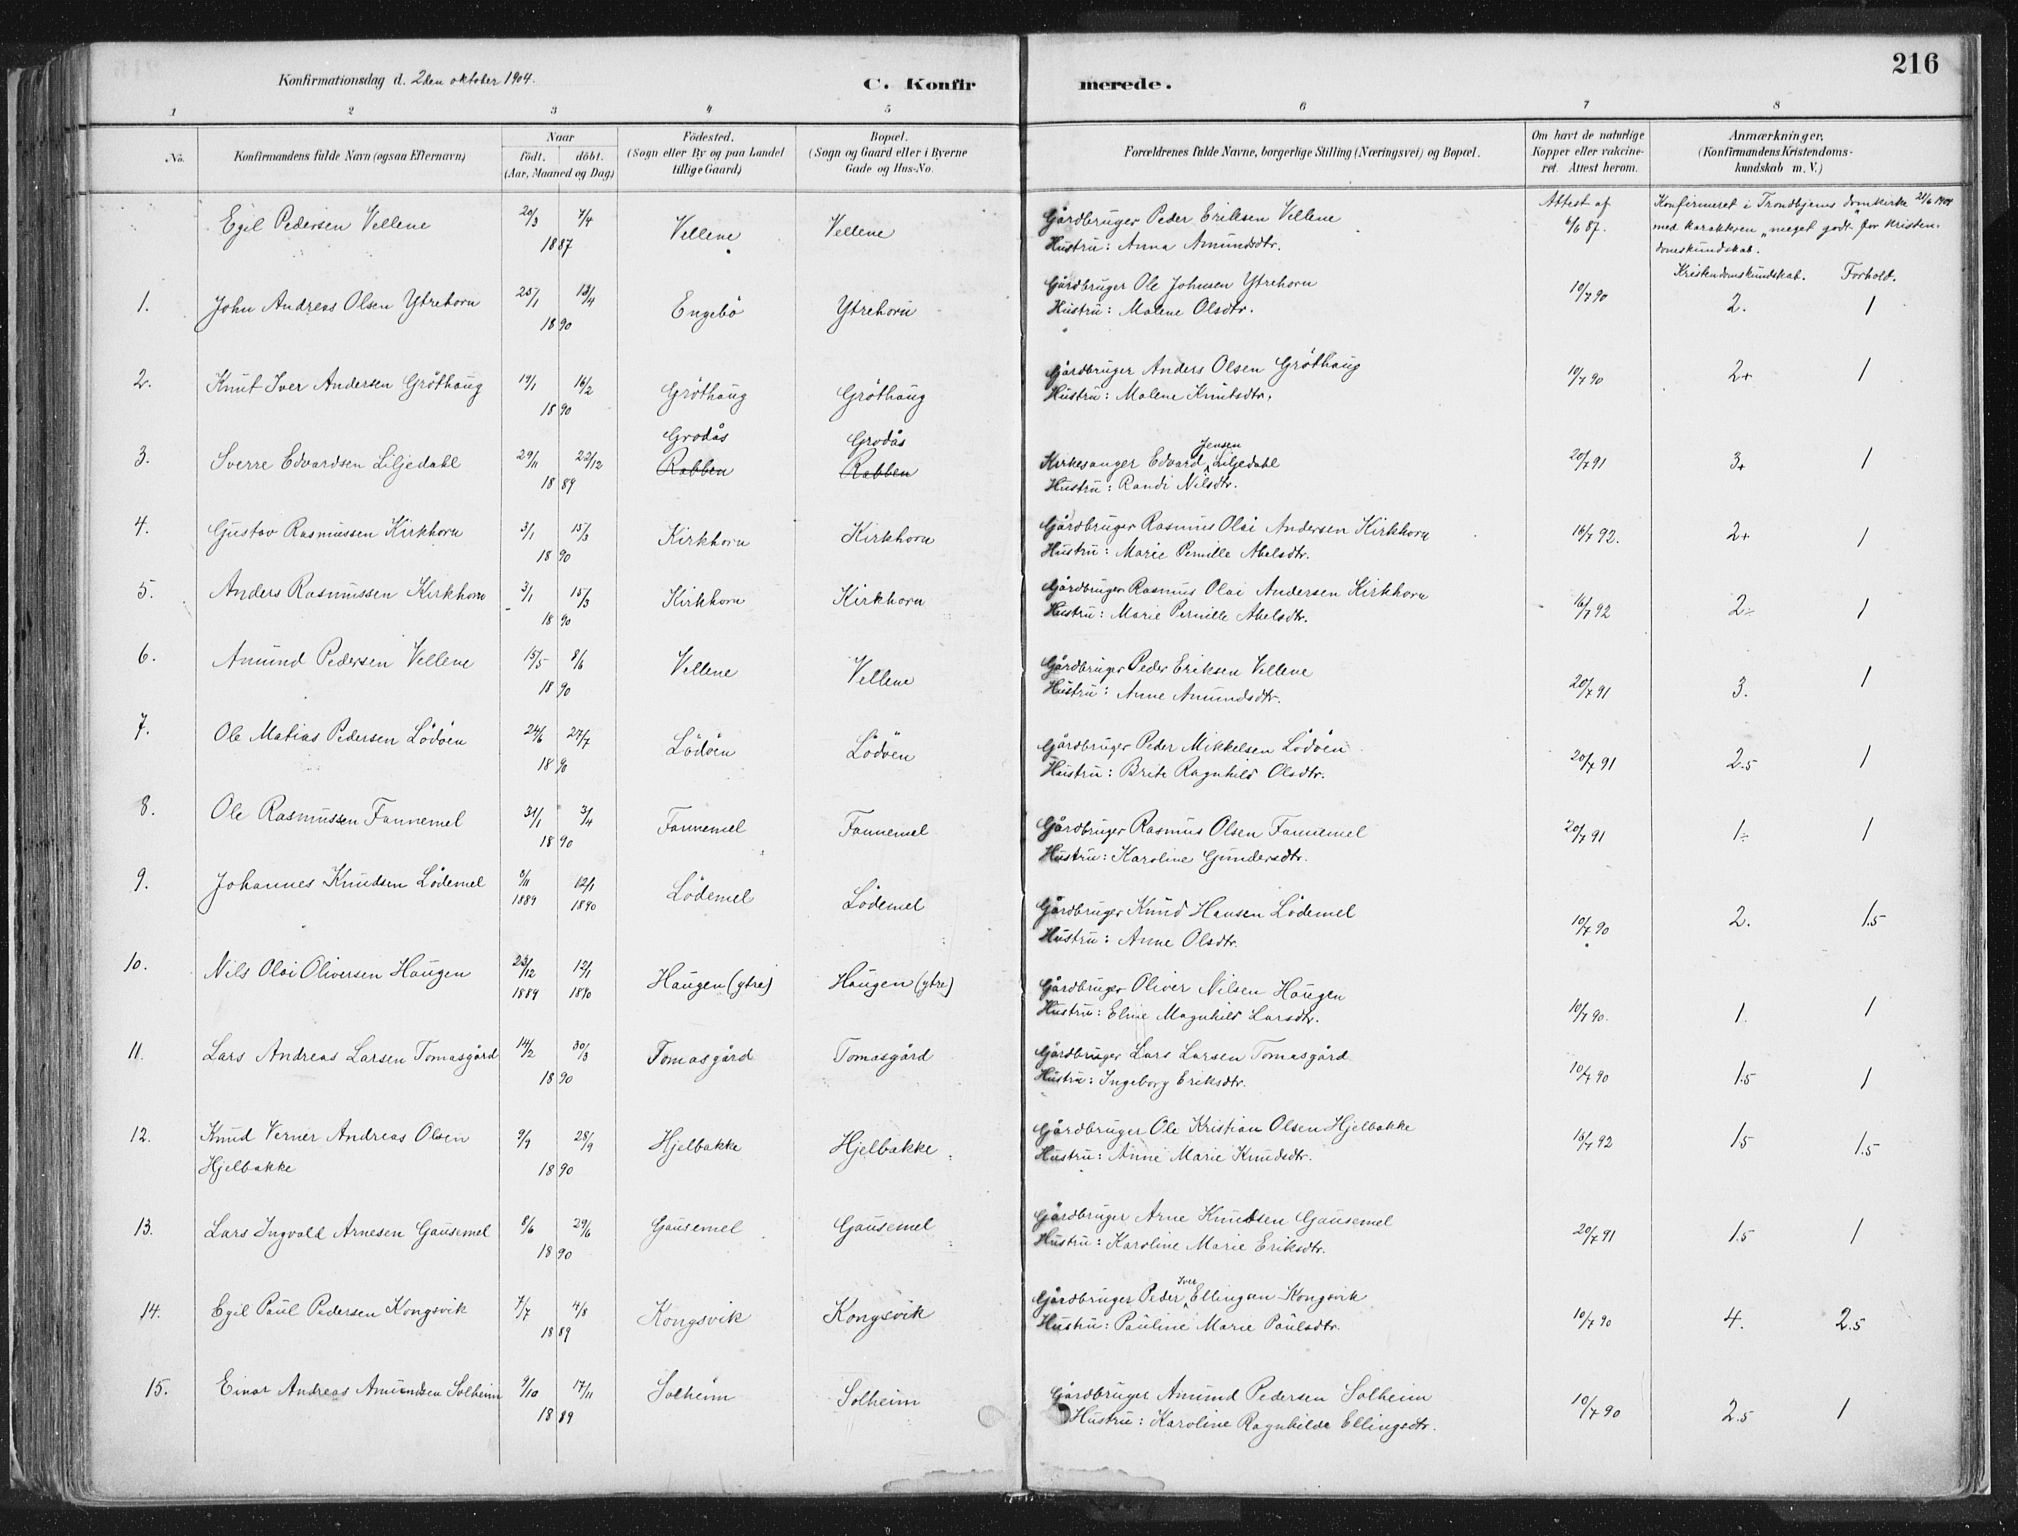 216
Konfirmationsdag d. 2den oktober 1904.
C. Konfirmerede.
1 2 3 4 5 6 7 8
No.
Konfirmandens fulde Navn (ogsaa Efternavn)
Naar
födt. döbt.
(Aar, Maaned og Dag)
Födested.
(Sogn eller By og paa Landet
tillige Gaard)
Bopæl.
(Sogn og Gaard eller i Byerne
Gade og Hus-No.
Forældrenes fulde Navne, borgerlige Stilling (Næringsvei) og Bopæl.
Om havt de naturlige
Kopper eller vakcine-
ret. Attest herom.
Anmærkninger.
(Konfirmandens Kristendoms-
kundskab m. V.)
Egil Pedersen Vellene 20/3 7/4 1887 Vellene Vellene
Gårdbruger Peder Eriksen Vellene
Hustru: Anna Amundsdtr.
Attest af
6/6 87.
Konfirmeret i Trondhjems domkirke 21/6 1904
med karakteren „meget godt" for kristen-
domskundskab.
Kristendomskundskab. Forhold.
1. John Andreas Olsen Ytrehorn 25/1 13/4 1890 Engebö Ytrehorn
Gårdbruger Ole Johnsen Ytrehorn
Hustru: Malene Olsdtr.
10/7 90 2. 1
2. Knut Iver Andersen Gröthaug 19/1 16/2 1890 Gröthaug Gröthaug
Gårdbruger Anders Olsen Gröthaug
Hustru: Malene Knutsdtr.
10/7 90 2+ 1
3. Sverre Edvardsen Liljedahl 29/11 22/12 1889 Grodås Rabben Grodås Rabben
Kirkesanger Edvard Jensen Liljedahl
Hustru: Randi Nilsdtr.
20/7 91 3+ 1
4. Gustav Rasmussen Kirkhorn 3/1 15/3 1890 Kirkhorn Kirkhorn
Gårdbruger Rasmus Olai Andersen Kirkhorn
Hustru: Marie Pernille Abelsdtr.
16/7 92. 2+ 1
5. Anders Rasmussen Kirkhorn 3/1 15/3 1890 Kirkhorn Kirkhorn
Gårdbruger Rasmus Olai Andersen Kirkhorn
Hustru: Marie Pernille Abelsdtr.
16/7 92 2÷ 1
6. Amund Pedersen Vellene 15/5 8/6 1890 Vellene Vellene
Gårdbruger Peder Eriksen Vellene
Hustru: Anne Amundsdtr.
20/7 91 3. 1
7. Ole Matias Pedersen Lödöen 24/6 27/7 1890 Lödöen Lödöen
Gårdbruger Peder Mikkelsen Lödöen
Hustru: Brite Ragnhild Olsdtr.
20/7 91 2.5 1
8. Ole Rasmussen Fannemel 31/1 3/4 1890 Fannemel Fannemel
Gårdbruger Rasmus Olsen Fannemel
Hustru: Karoline Gundersdtr.
20/7 91 1÷ 1
9. Johannes Knudsen Lödemel 1889 12/1 1890 Lödemel Lödemel
Gårdbruger Knud Hansen Lödemel
Hustru: Anne Olsdtr.
10/7 90 2. 1.5
10. Nils Olai Oliversen Haugen 23/12 1889 12/1 1890 Haugen (ytre) Haugen (ytre)
Gårdbruger Oliver Nilsen Haugen
Hustru: Eline Magnhild Larsdtr.
10/7 90. 1. 1
11. Lars Andreas Larsen Tomasgård 14/2 30/3 1890 Tomasgård Tomasgård
Gårdbruger Lars Larsen Tomasgård
Hustru: Ingeborg Eriksdtr.
10/7 90 1.5 1
12. Knud Verner Andreas Olsen
Hjelbakke 9/9 28/9 1890 Hjelbakke Hjelbakke
Gårdbruger Ole Kristian Olsen Hjelbakke
Hustru: Anne Marie Knudsdtr.
16/7 92 1.5 1.5
13. Lars Ingvald Arnesen Gausemel 8/6 29/6 1890 Gausemel Gausemel
Gårdbruger Arne Knudsen Gausemel
Hustru: Karoline Marie Eriksdtr.
20/7 91 1.5 1
14. Egil Paul Pedersen Kongsvik 7/7 4/8 1889 Kongsvik Kongsvik
Gårdbruger Peder Iver Ellingsen Kongsvik
Hustru: Pauline Marie Paulsdtr.
10/7 90 4. 2.5
15. Einar Andreas Amundsen Solheim 9/10 17/11 1889 Solheim Solheim
Gårdbruger Amund Pedersen Solheim
Hustru: Karoline Ragnhilde Ellingsdtr.
10/7 90 2.5 1